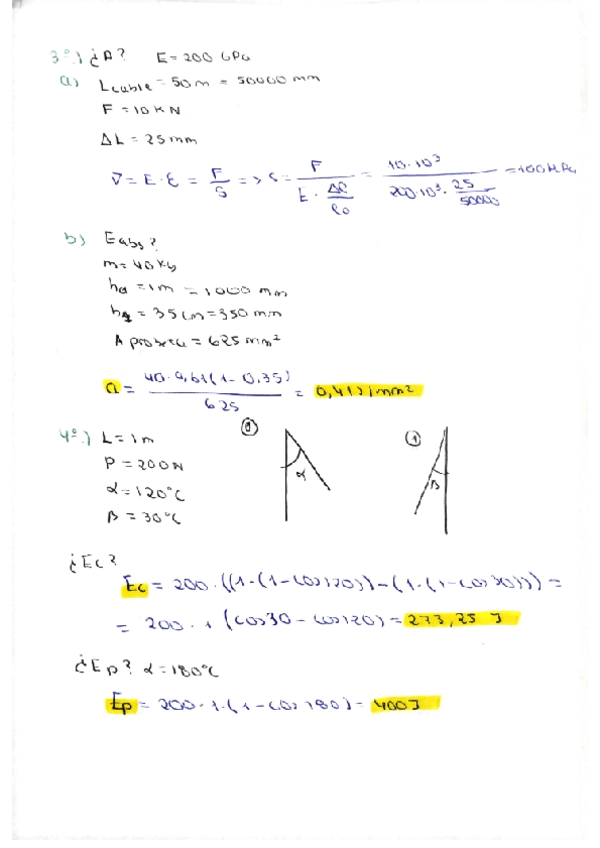 3º.) ¿A? E = 200 GPa
a) Lcable = 50m = 50000 mm
F = 10 KN
ΔL = 25 mm
∇ = E · ε = F/S => S = F/(E · Δl/l0) = 10·10³/(200·10³ · 25/50000) = 100 MPa
b) Eabs?
m = 40 Kg
= 1m = 1000 mm
= 35 cm = 350 mm
A probeta = 625 mm²
= 40·9,61(1 - 0.35)/625 = 0,41 J/mm²
4º.) L = 1m
P = 200N
α = 120°C
β = 30°C
α
1
β
¿Ec?
Ec = 200·((1-(1-cos120))-(1·(1-cos30))) =
= 200 · 1 (cos30 - cos120) = 273,25 J
¿Ep? α = 180°C
Ep = 200 · 1·(1 - cos 180) = 400J